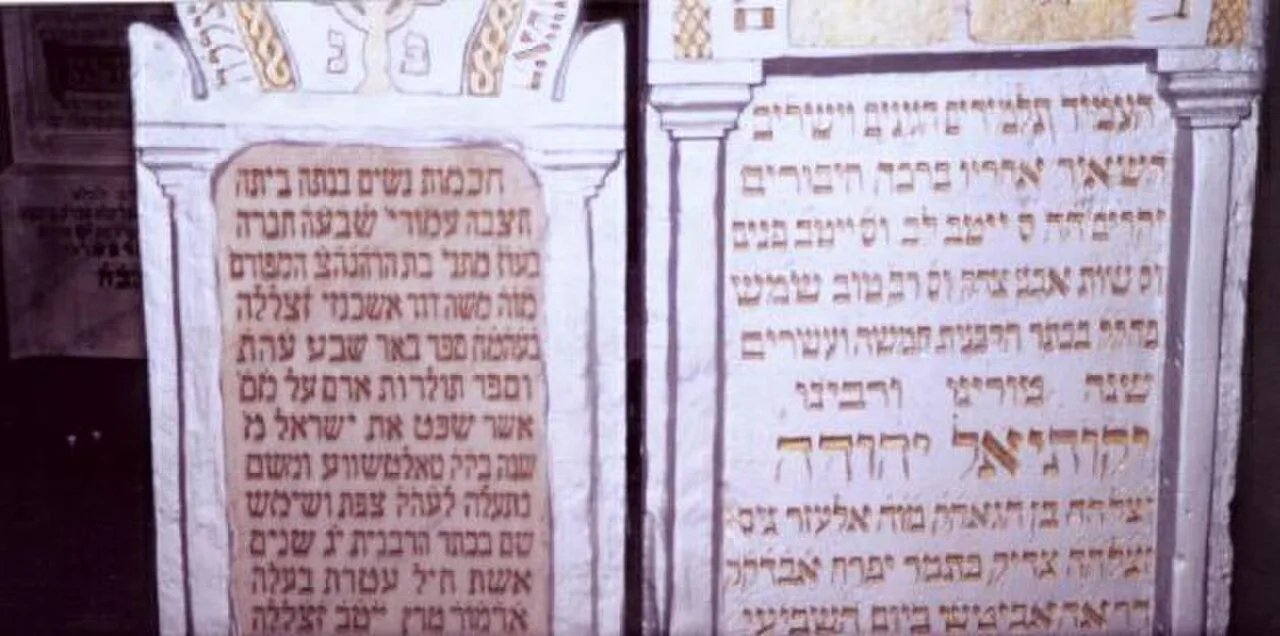 פ נ
חכמות נשים בנתה ביתה
חצבה עמודי' שבעה חברה
בעוז מתני' בת הרהגהצ המפורם
מוה משה דוד אשכנזי זצללה
בעהמח ספר באר שבע עהת
וספר תולדות אדם על מס
אשר שפט את ישראל מז
שנה בקק טאלטשווע ומשם
נתעלה לעהק צפת ושימש
שם בכתר הרבנית יג שנים
אשת חיל עטרת בעלה
אדמור מרן יטב זצללה
העמיד תלמידים הגונים וישרים
השאיר אחריו ברכה חיבורים
יקרים הה ס ייטב לב וס ייטב פנים
וס שות אבני צדק וס רב טוב שימש
פהקק בכתר הרבנית חמשה ועשרים
שנה מורינו ורבינו
יקותיאל יהודה
זצלהה בן הגאהק מוה אלעזר ניסן
זצלהה צדיק כתמר יפרח אבדקק
דראהאביטש ביום השביעי